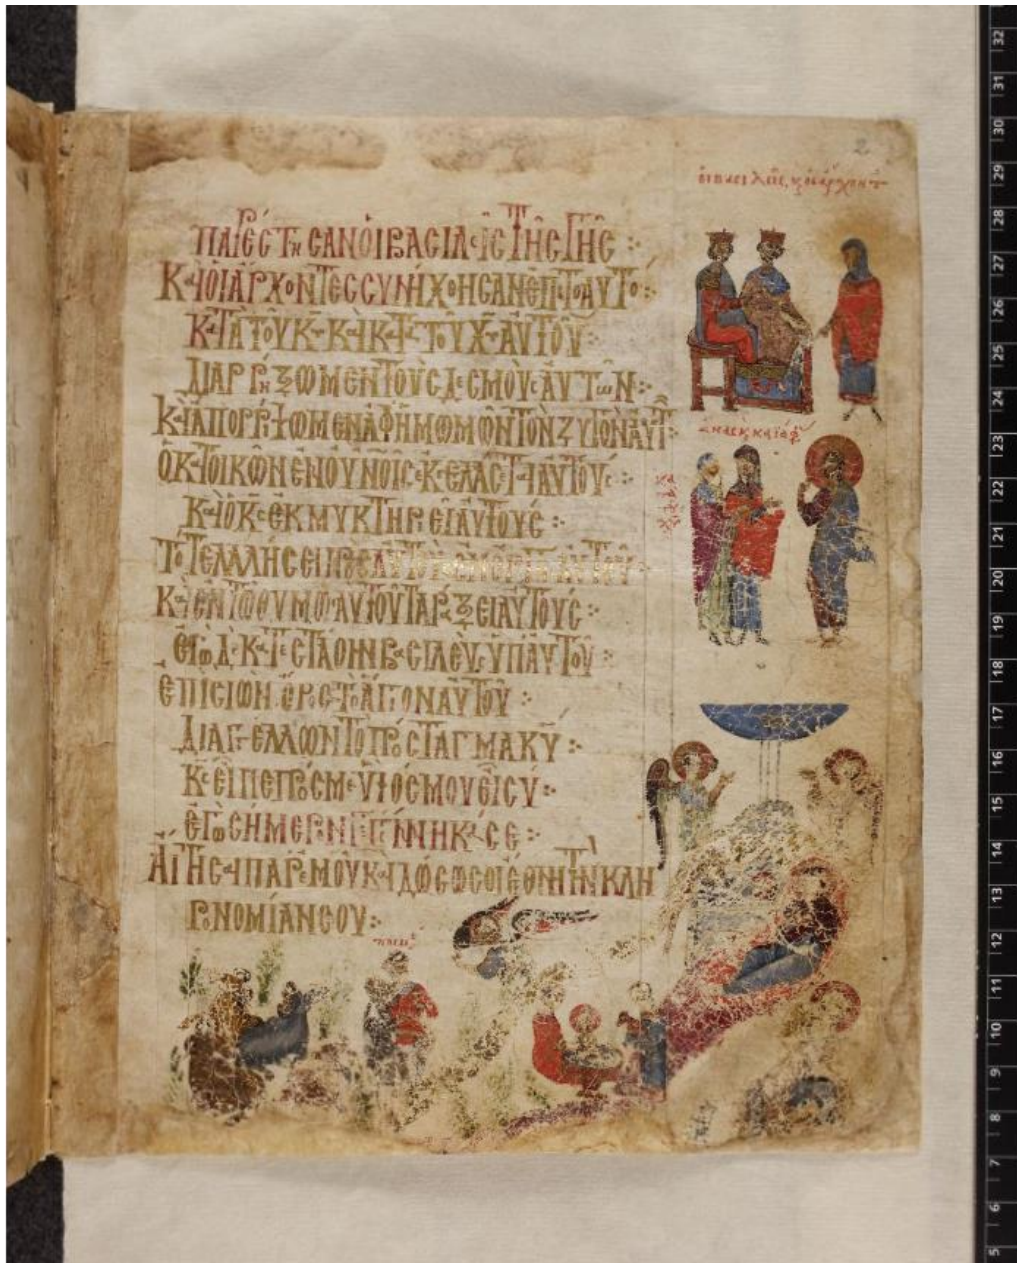 2
οἱ βασιλεῖς, κ οἱ ἄρχοντ
ΠΑΡΕϹΤΗϹΑΝ ΟΙ ΒΑϹΙΛΕΙϹ ΤΗϹ ΓΗϹ :
ΚΑΙ ΟΙ ΑΡΧΟΝΤΕϹ ϹΥΝΗΧΘΗϹΑΝ ΕΠΙ ΤΟ ΑΥΤΟ :
ΚΑΤΑ ΤΟΥ Κ̅Υ̅ Κ ΚΑΤΑ ΤΟΥ Χ̅Υ̅ ΑΥΤΟΥ :
ΔΙΑΡΡΗΞΩΜΕΝ ΤΟΥϹ ΔΕϹΜΟΥϹ ΑΥΤΩΝ :
ΚΑΙ ΑΠΟΡΡΙΨΩΜΕΝ ΑΦ ΗΜΩΝ ΤΟΝ ΖΥΓΟΝ ΑΥΤ :
Ο ΚΑΤΟΙΚΩΝ ΕΝ ΟΥΝΟΙϹ ΕΚΓΕΛΑϹΕΤΑΙ ΑΥΤΟΥϹ :
ΚΑΙ Ο Κ̅Ϲ̅ ΕΚΜΥΚΤΗΡΙΕΙ ΑΥΤΟΥϹ :
ΤΟΤΕ ΛΑΛΗϹΕΙ ΠΡΟϹ ΑΥΤΟΥϹ ΕΝ ΟΡΓΗ ΑΥΤΟΥ :
ΚΑΙ ΕΝ ΤΩ ΘΥΜΩ ΑΥΤΟΥ ΤΑΡΑΞΕΙ ΑΥΤΟΥϹ :
ΕΓΩ ΔΕ ΚΑΤΕϹΤΑΘΗΝ ΒΑϹΙΛΕΥϹ ΥΠ ΑΥΤΟΥ :
ΕΠΙ ϹΙΩΝ ΟΡΟϹ ΤΟ ΑΓΙΟΝ ΑΥΤΟΥ :
ΔΙΑΓΓΕΛΛΩΝ ΤΟ ΠΡΟϹΤΑΓΜΑ Κ̅Υ̅ :
Κ̅Ϲ̅ ΕΙΠΕ ΠΡΟϹ ΜΕ ΥΙΟϹ ΜΟΥ ΕΙ ϹΥ :
ΕΓΩ ϹΗΜΕΡΟΝ ΓΕΓΕΝΝΗΚΑ ϹΕ :
ΑΙΤΗϹΑΙ ΠΑΡ ΕΜΟΥ ΚΑΙ ΔΩϹΩ ϹΟΙ ΕΘΝΗ ΤΗΝ ΚΛΗ
ΡΟΝΟΜΙΑΝ ϹΟΥ :
32
31
30
29
28
27
26
25
24
23
22
21
20
19
18
17
16
15
14
13
12
11
10
9
8
7
6
5